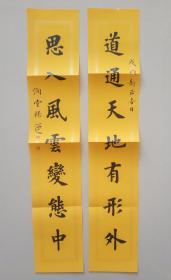 道通天地有形外
思入風雲變態中